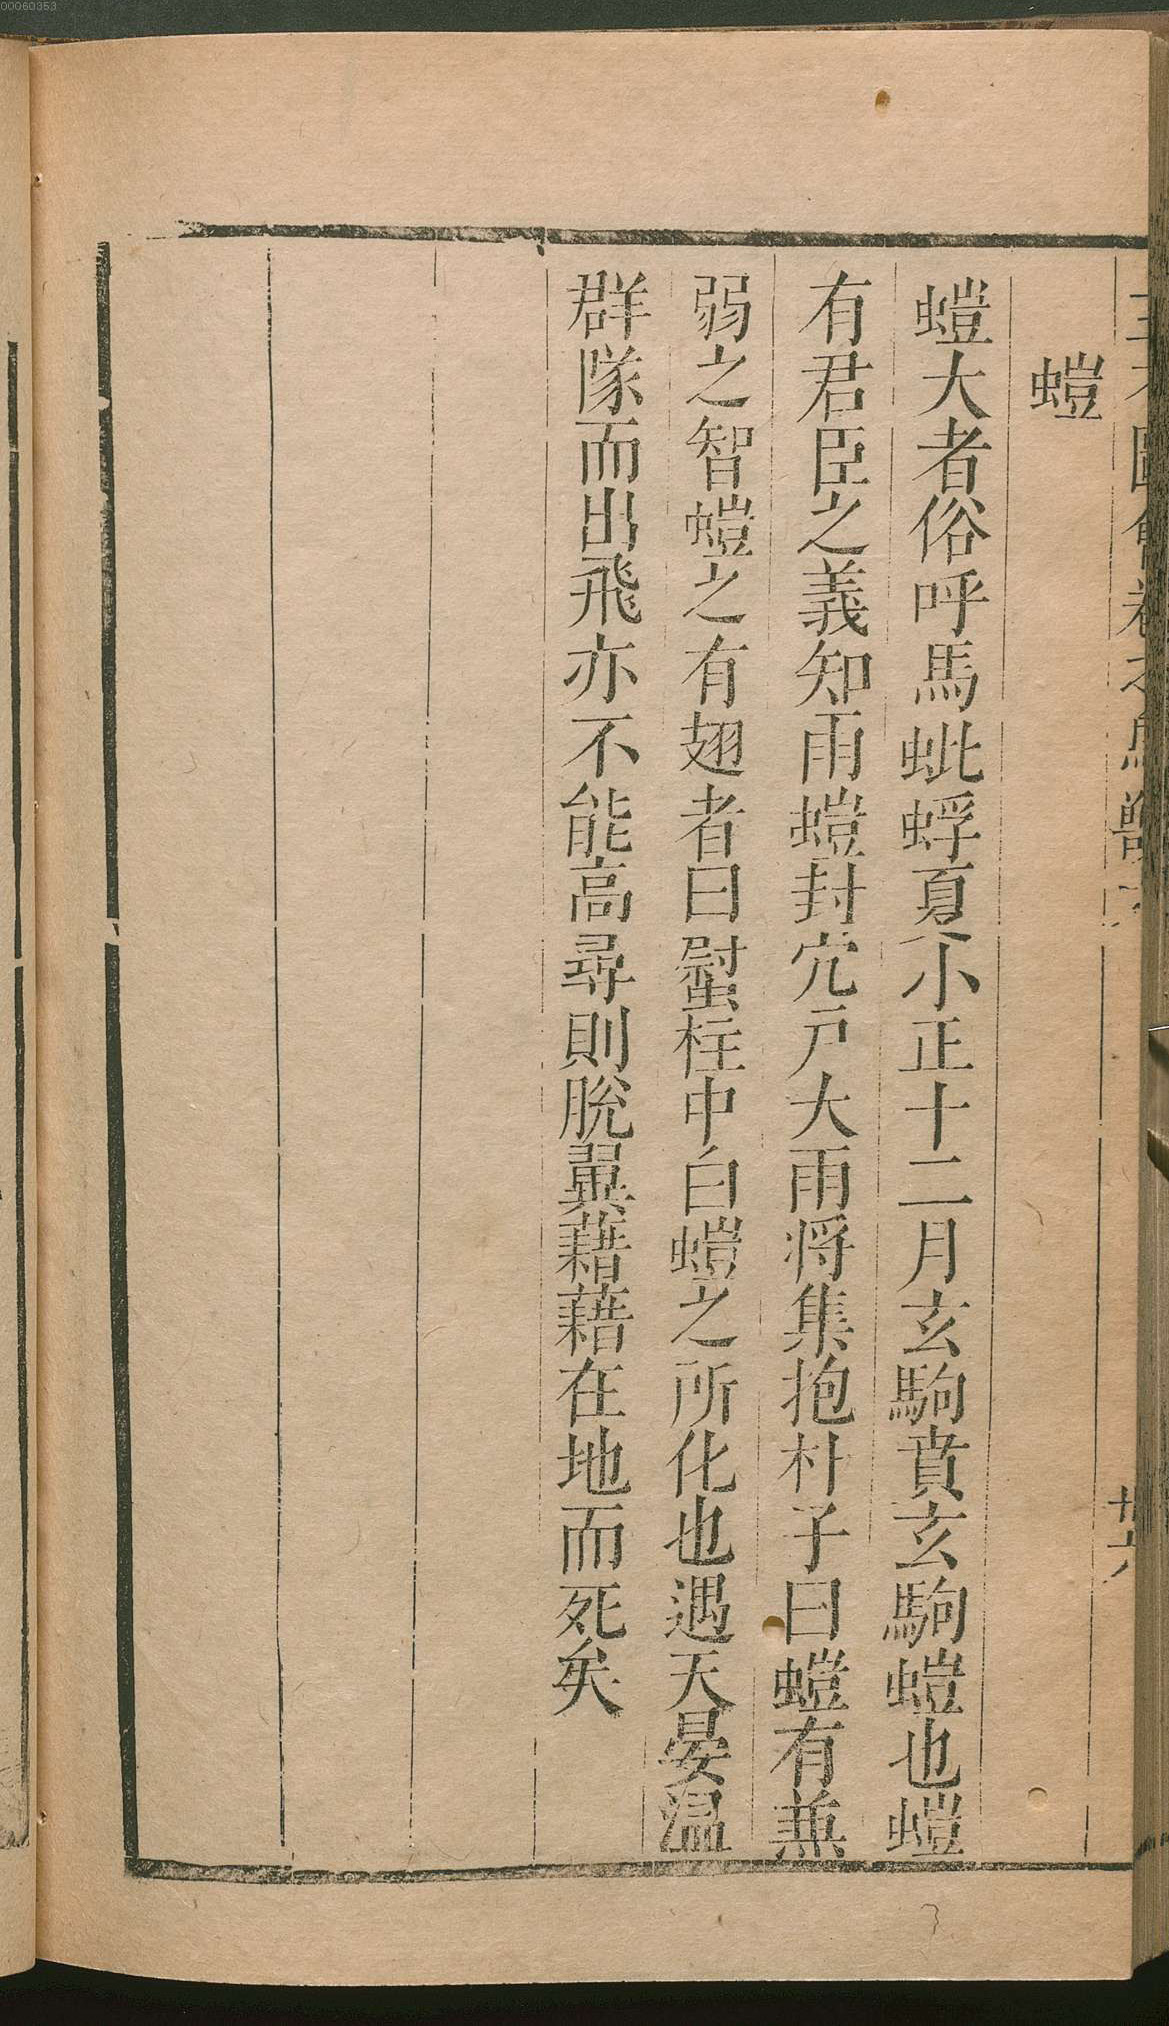 00060353
螘
螘大者俗呼馬蚍蜉夏小正十二月玄駒賁玄駒螘也螘
有君臣之義知雨螘封穴戶大雨將集抱朴子曰螘有兼
弱之智螘之有翅者曰螱柱中白螘之所化也遇天晏溫
群隊而出飛亦不能高尋則脫翼藉藉在地而死矣